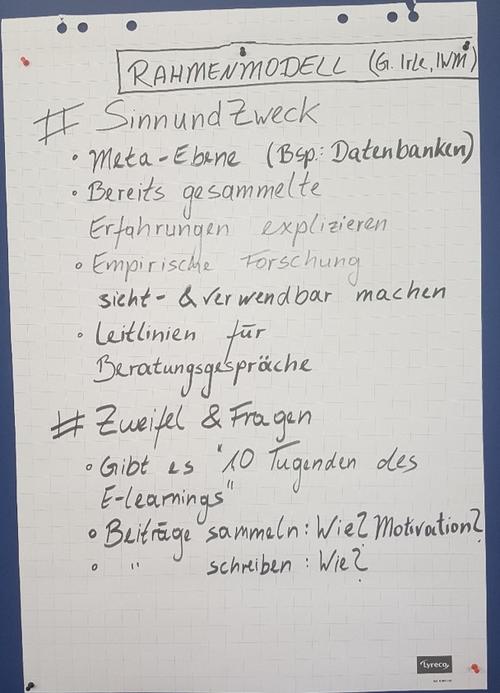 RAHMENMODELL (G. Irle, IWM)
# SinnundZweck
• Meta-Ebene (Bsp.: Datenbanken)
• Bereits gesammelte
Erfahrungen explizieren
• Empirische Forschung
sicht- & verwendbar machen
• Leitlinien für
Beratungsgespräche
# Zweifel & Fragen
• Gibt es "10 Tugenden des
E-learnings"
• Beiträge sammeln: Wie? Motivation?
• " schreiben: Wie?
Lyreco